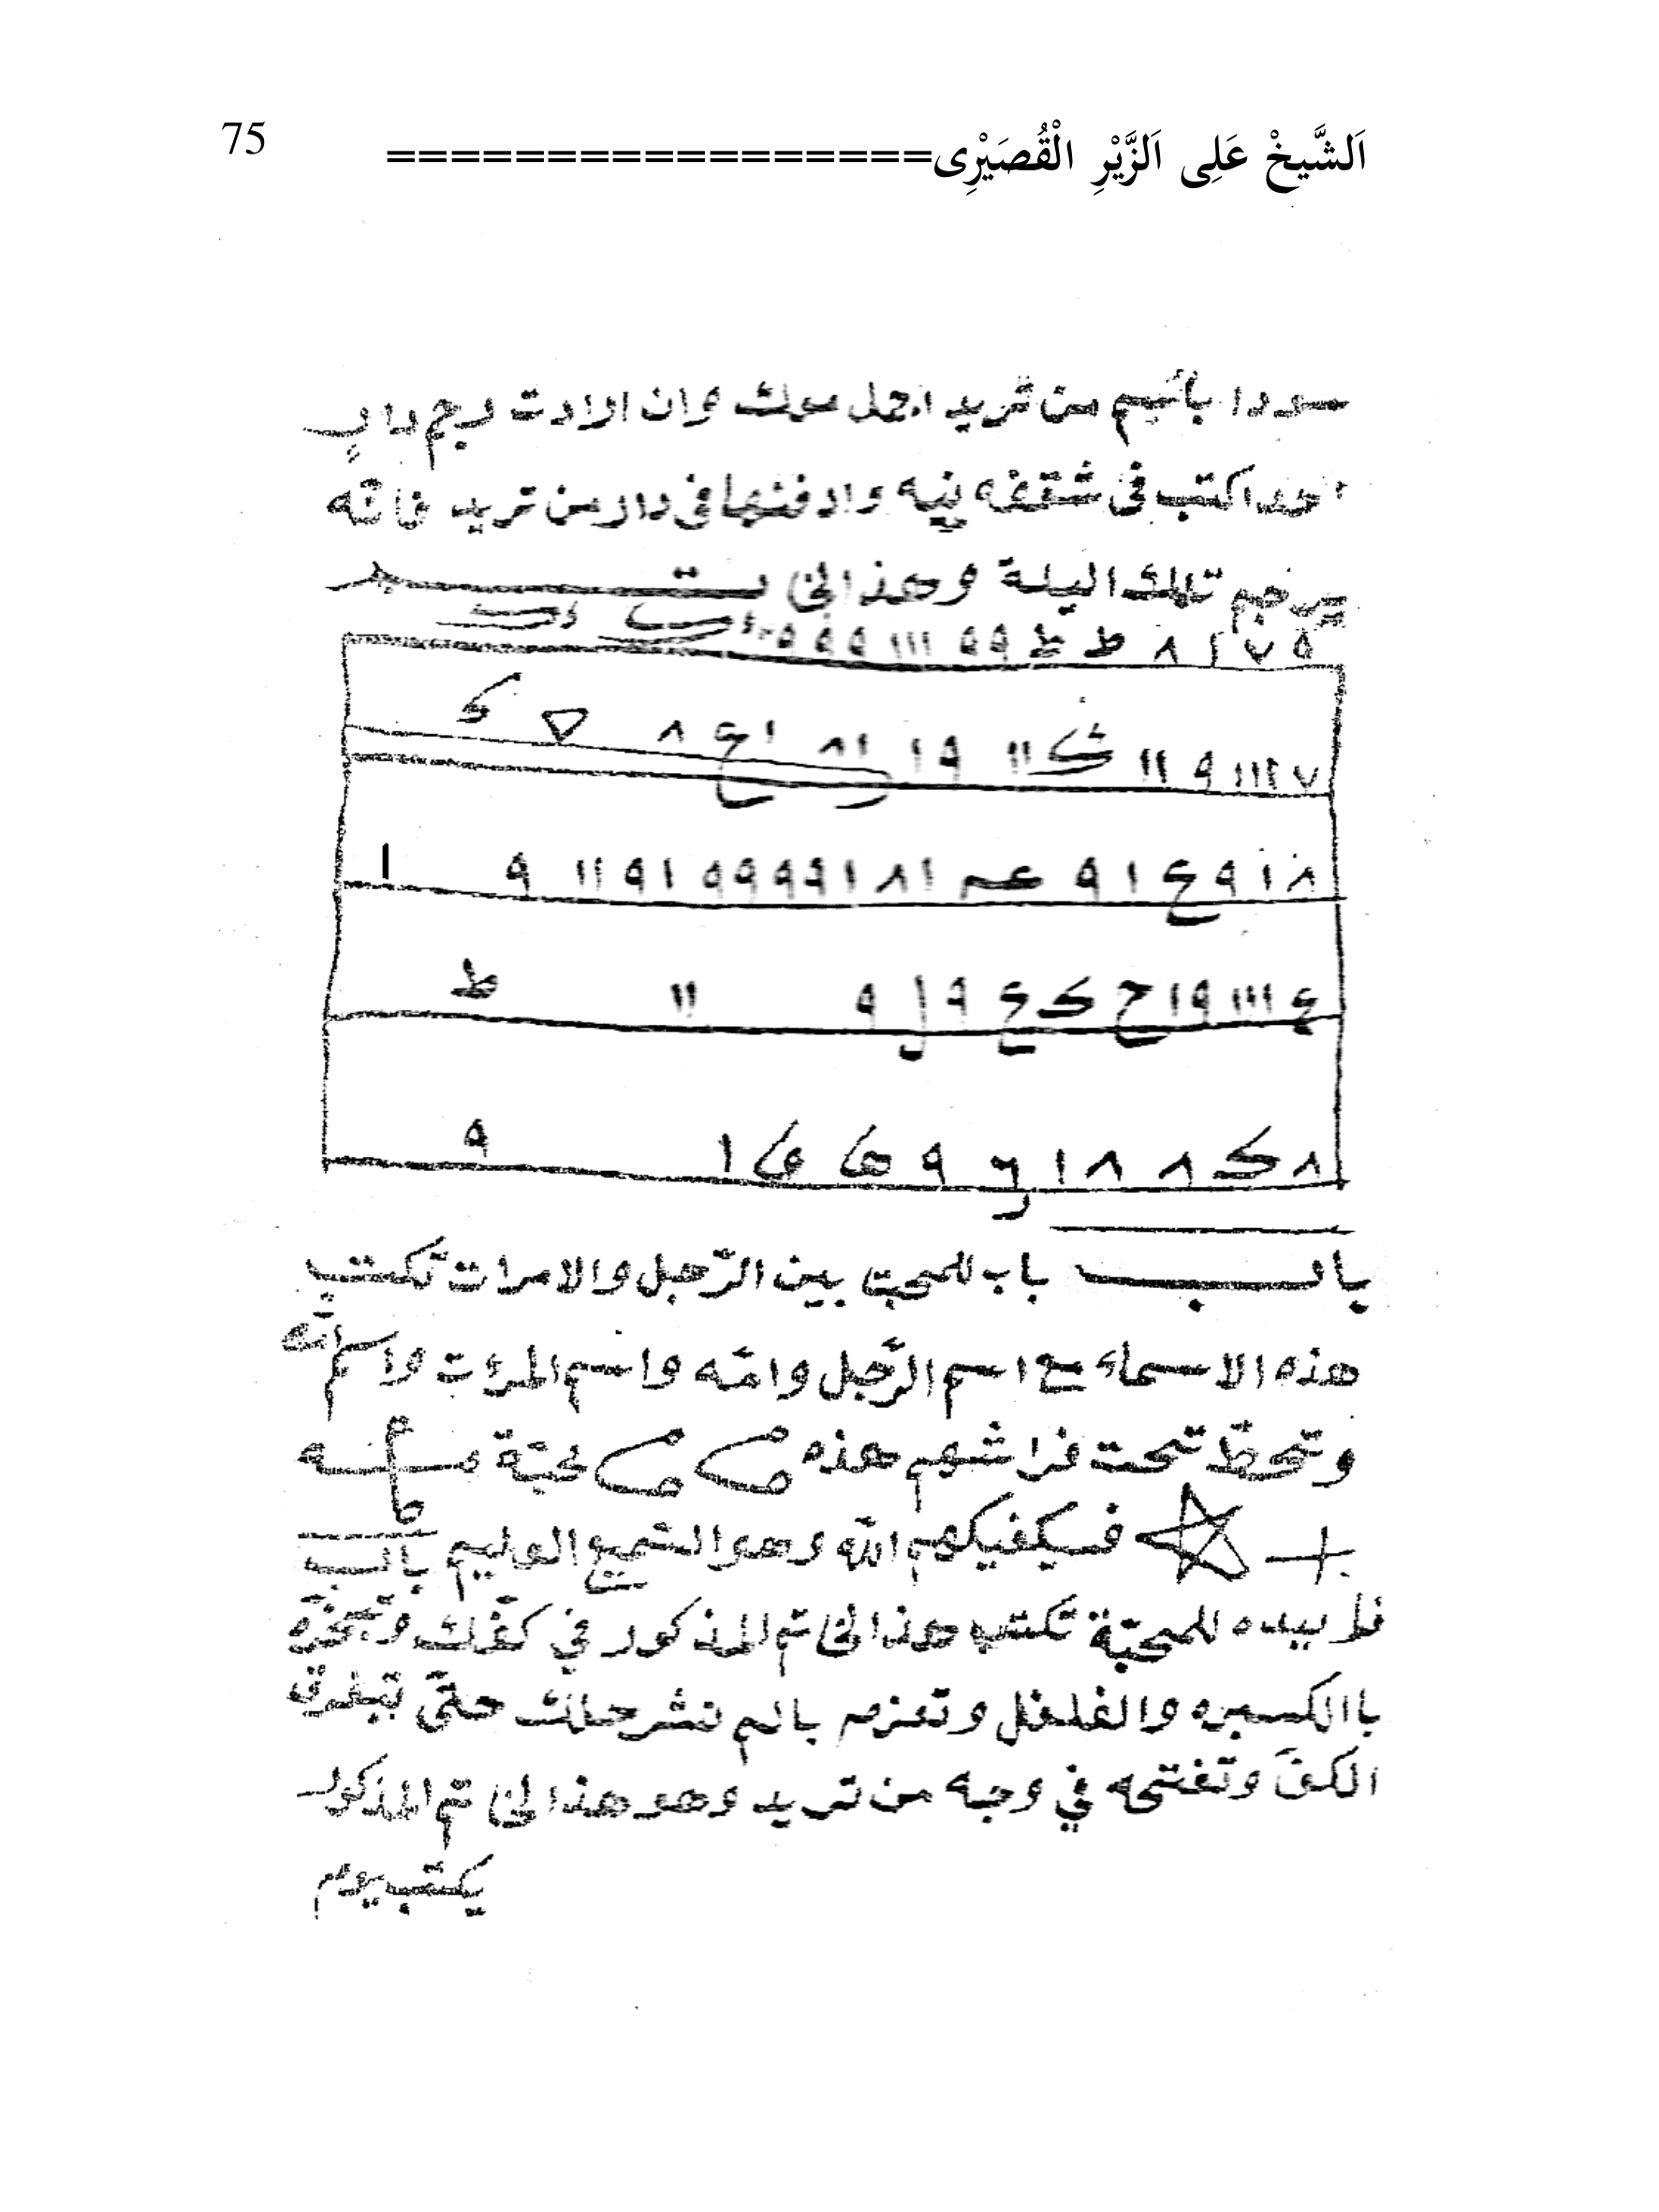 75
اَلشَّيخْ عَلِى اَلزَّيْرِ الْقُصَيْرِى=================
سودا بأسم من تريد اجعل سوك وان ارادت رجم دار
احدا اكتب فى شقفه نيه وادفنها فى دار من تريد فانه
يرجم تلك اليلة وهذا الخا تــــم
٥ ٧ ١ ٨ ط ط ٩٩ ١١١ ٩٩٩
٧ ١١١٢ ٩ ١١ ك ١١ ٩ ١ ١٨ ١ع ٨ ▽ ك
٨ ١ ٩ ع ١ ٩ عـ ١ ٨ ١ ٩٩٩٩ ١ ٩ ١١ ٩ ١
ع ١١١ ٩ ١ ح ك ع ٩ ل ٩ ١١ ط
٨ ك ٨ ٨ ١ و ٩ ١ ٩
بـــاب باب للمحبة بين الرّجل والامرات تكتب
هذه الاسماء مع اسم الرّجل وامّه واسم المرات واسم امّه
وتحطّ تحت فراشهم هذه محبّة
فسيكفيكهم الله وهو السّميع العليم بـاب
للمحبّة تكتب هذا الخاتم المذكور في كفّك وتبخّره
باالكسبره والفلفل وتعزم بالم نشرح لك حتّى تبغرق
الكفّ وتفتحه في وجه من تريد وهو هذا الخاتم المذكور
يكتب يوم